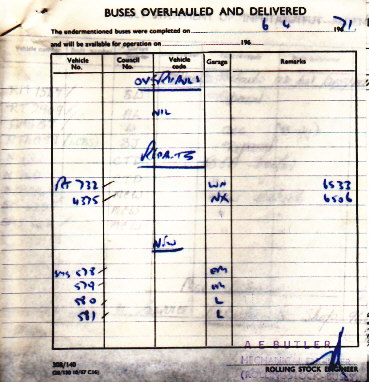 BUSES OVERHAULED AND DELIVERED
The undermentioned buses were completed on 6 4 196 71
and will be available for operation on 196
Vehicle No. Council No. Vehicle code Garage Remarks
OVERHAULS
NIL
REPAINTS
RT 732 WN 6533
4375 NX 6506
NEW
578
579
580 L
581 L
A E BUTLER
ROLLING STOCK ENGINEER
308/140